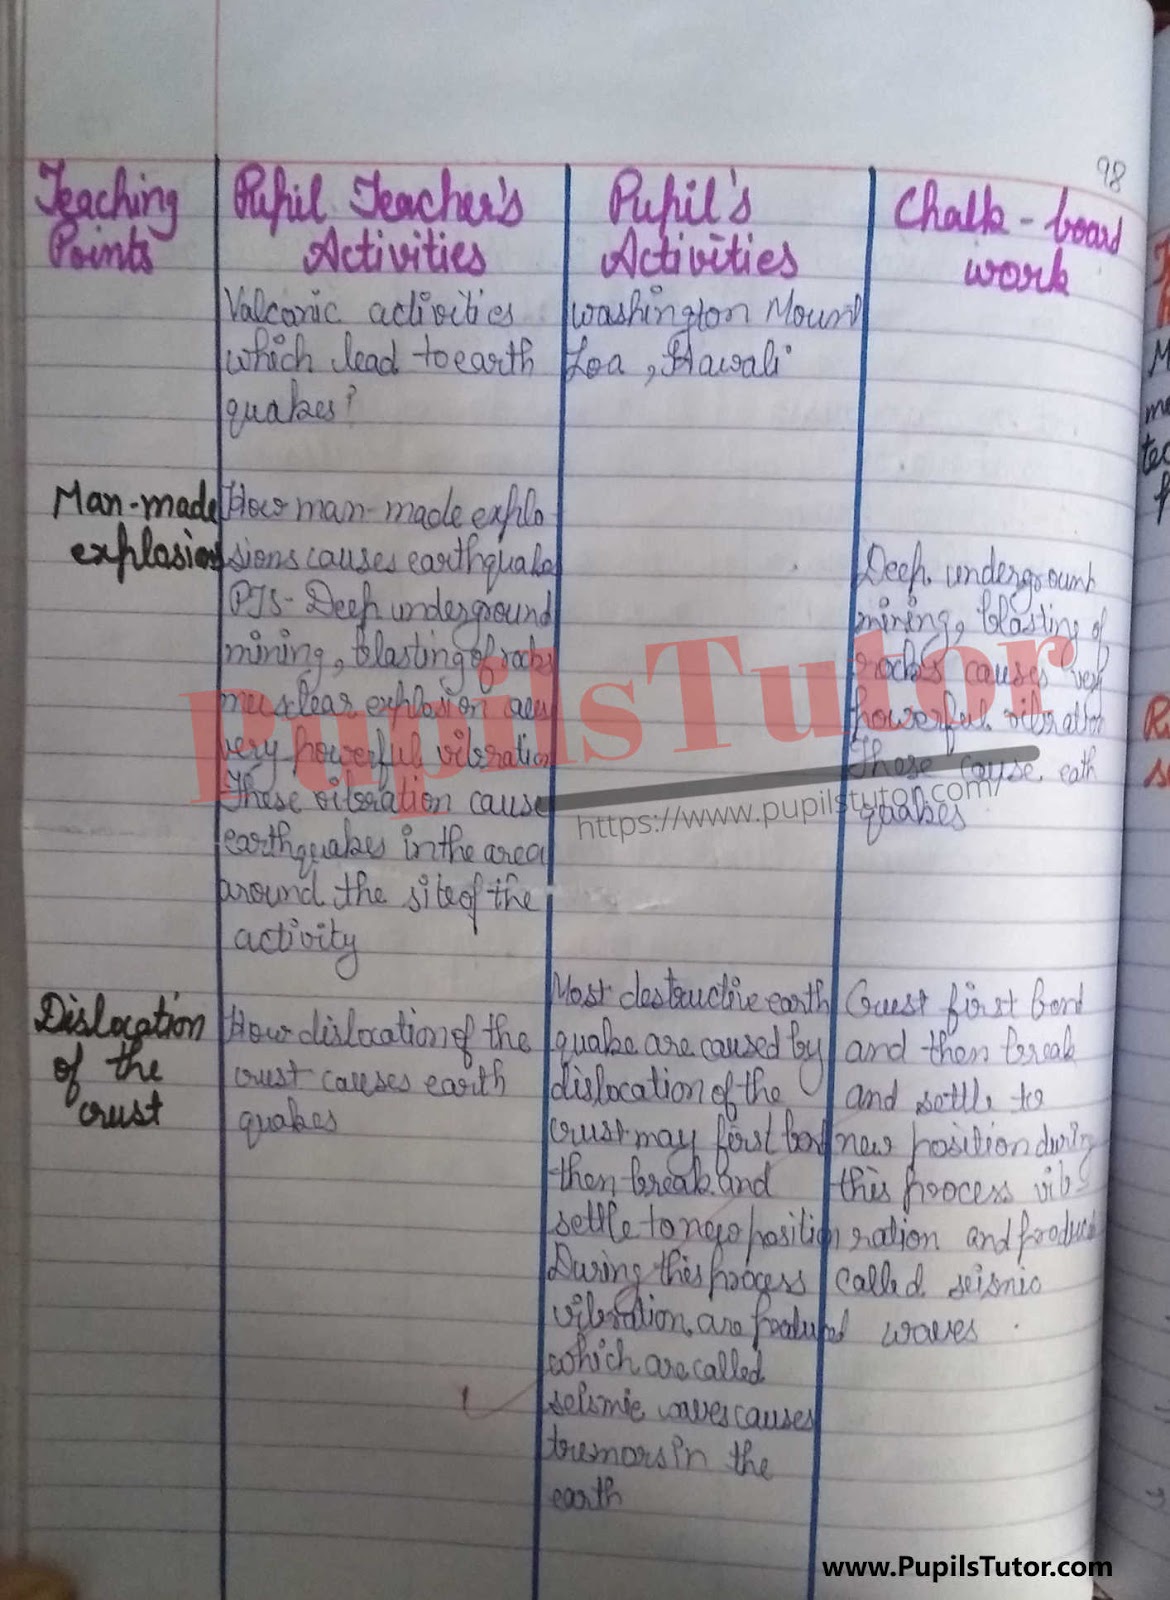 98
Teaching
Points
Pupil Teacher's
Activities
Pupil's
Activities
Chalk-board
work
Valcanic activities
which lead to earth
quakes?
Washington Mount
Loa, Hawali
Man-made
explosion
How man-made explo
sions causes earthquake
PTS- Deep underground
mining, blasting of rocks
nuclear explosion
very powerful vibration
These vibration cause
earthquakes in the area
around the site of the
activity
Deep underground
mining, blasting of
rocks causes very
powerful vibration
These cause eath
quakes
Dislocation
of the
crust
How dislocation of the
crust causes earth
quakes
Most destructive earth
quake are caused by
dislocation of the
crust may first bend
then break and
settle to position
During this process
vibration are produced
which are called
seismic waves causes
tremors in the
earth
Crust first bend
and then break
and settle to
new position during
this process vib-
ration and produced
called seismic
waves
PupilsTutor
https://www.pupilstutor.com/
www.PupilsTutor.com